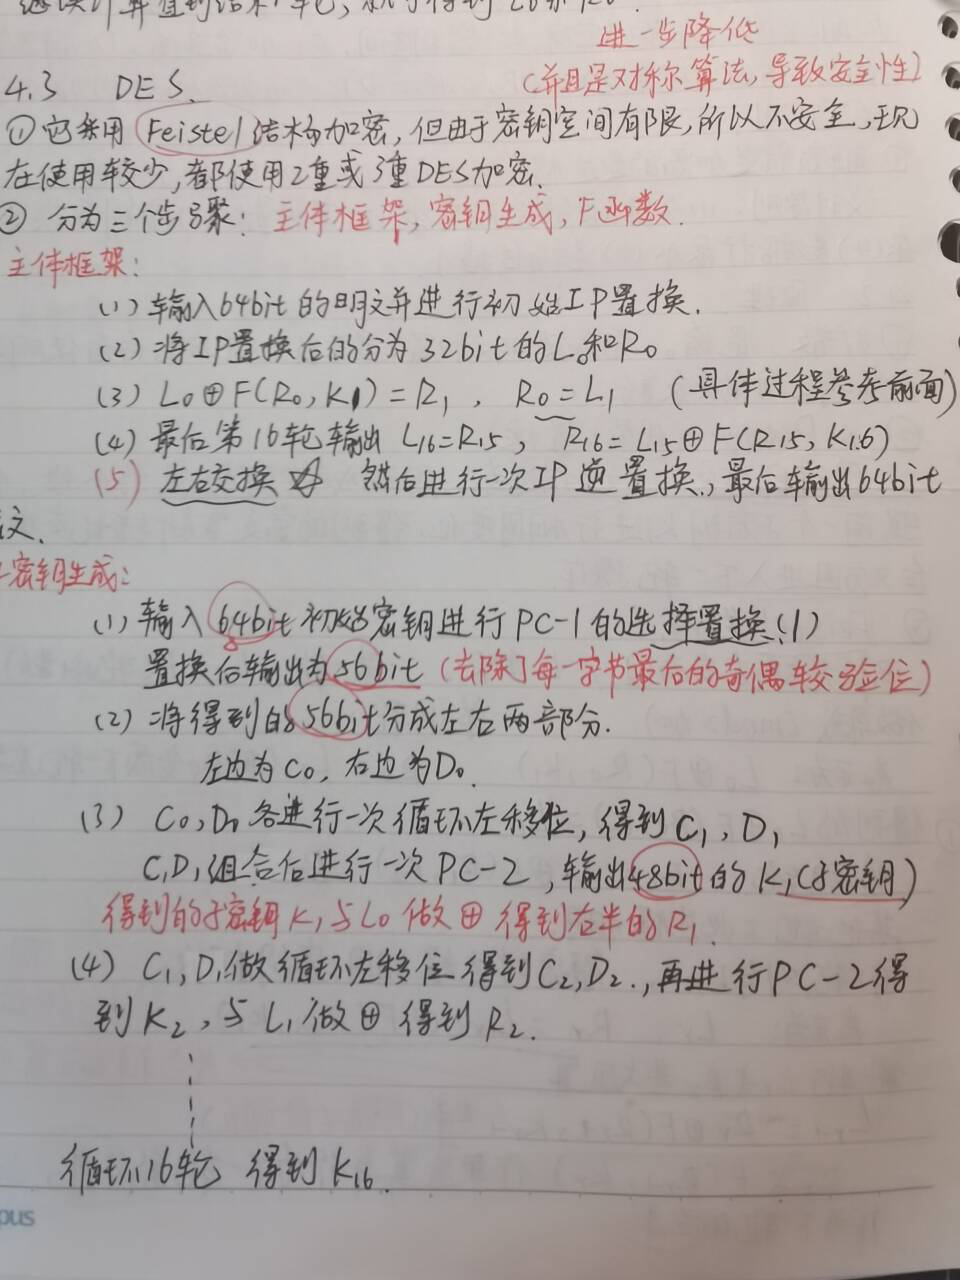 继续计算直到结束1轮,就可得到L0和R0.
进一步降低
(并且是对称算法,导致安全性)
4.3 DES.
①它采用Feistel结构加密,但由于密钥空间有限,所以不安全,现
在使用较少,都使用2重或3重DES加密.
② 分为三个步骤: 主体框架,密钥生成,F函数.
主体框架:
(1)输入64bit的明文并进行初始IP置换.
(2)将IP置换后的分为32bit的L0和R0
(3) L0⊕F(R0,K1)=R1, R0=L1 (具体过程参考前面)
(4) 最后第16轮输出 L16=R15, R16=L15⊕F(R15,K16)
(5) 左右交换 然后进行一次IP逆置换,最后输出64bit
文.
密钥生成:
(1)输入64bit初始密钥进行PC-1的选择置换(1)
置换后输出为56bit(去除了每一字节最后的奇偶较验位)
(2)将得到的56bit分成左右两部分.
左边为C0,右边为D0.
(3) C0,D0各进行一次循环左移位,得到C1,D1
C1D1组合后进行一次PC-2,输出48bit的K1(子密钥)
得到的子密钥K1与L0做⊕得到右半的R1.
(4) C1,D1做循环左移位得到C2,D2.,再进行PC-2得
到K2,与L1做⊕得到R2.
循环16轮 得到K16.
pus